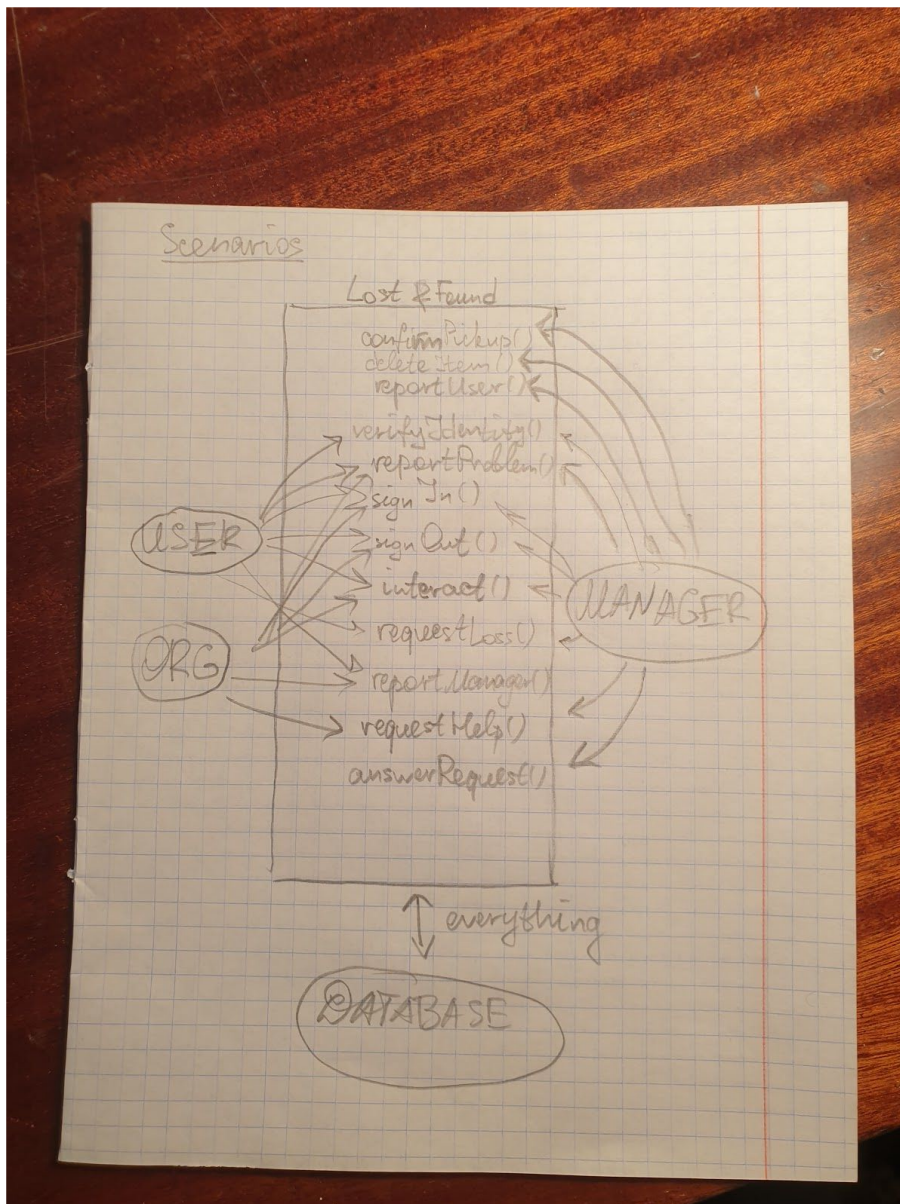 Scenarios
Lost & Found
confirmPickup()
deleteItem()
reportUser()
verifyIdentity()
reportProblem()
signIn()
USER
signOut()
interact()
MANAGER
requestLoss()
ORG
reportManager()
requestHelp()
answerRequest()
everything
DATABASE